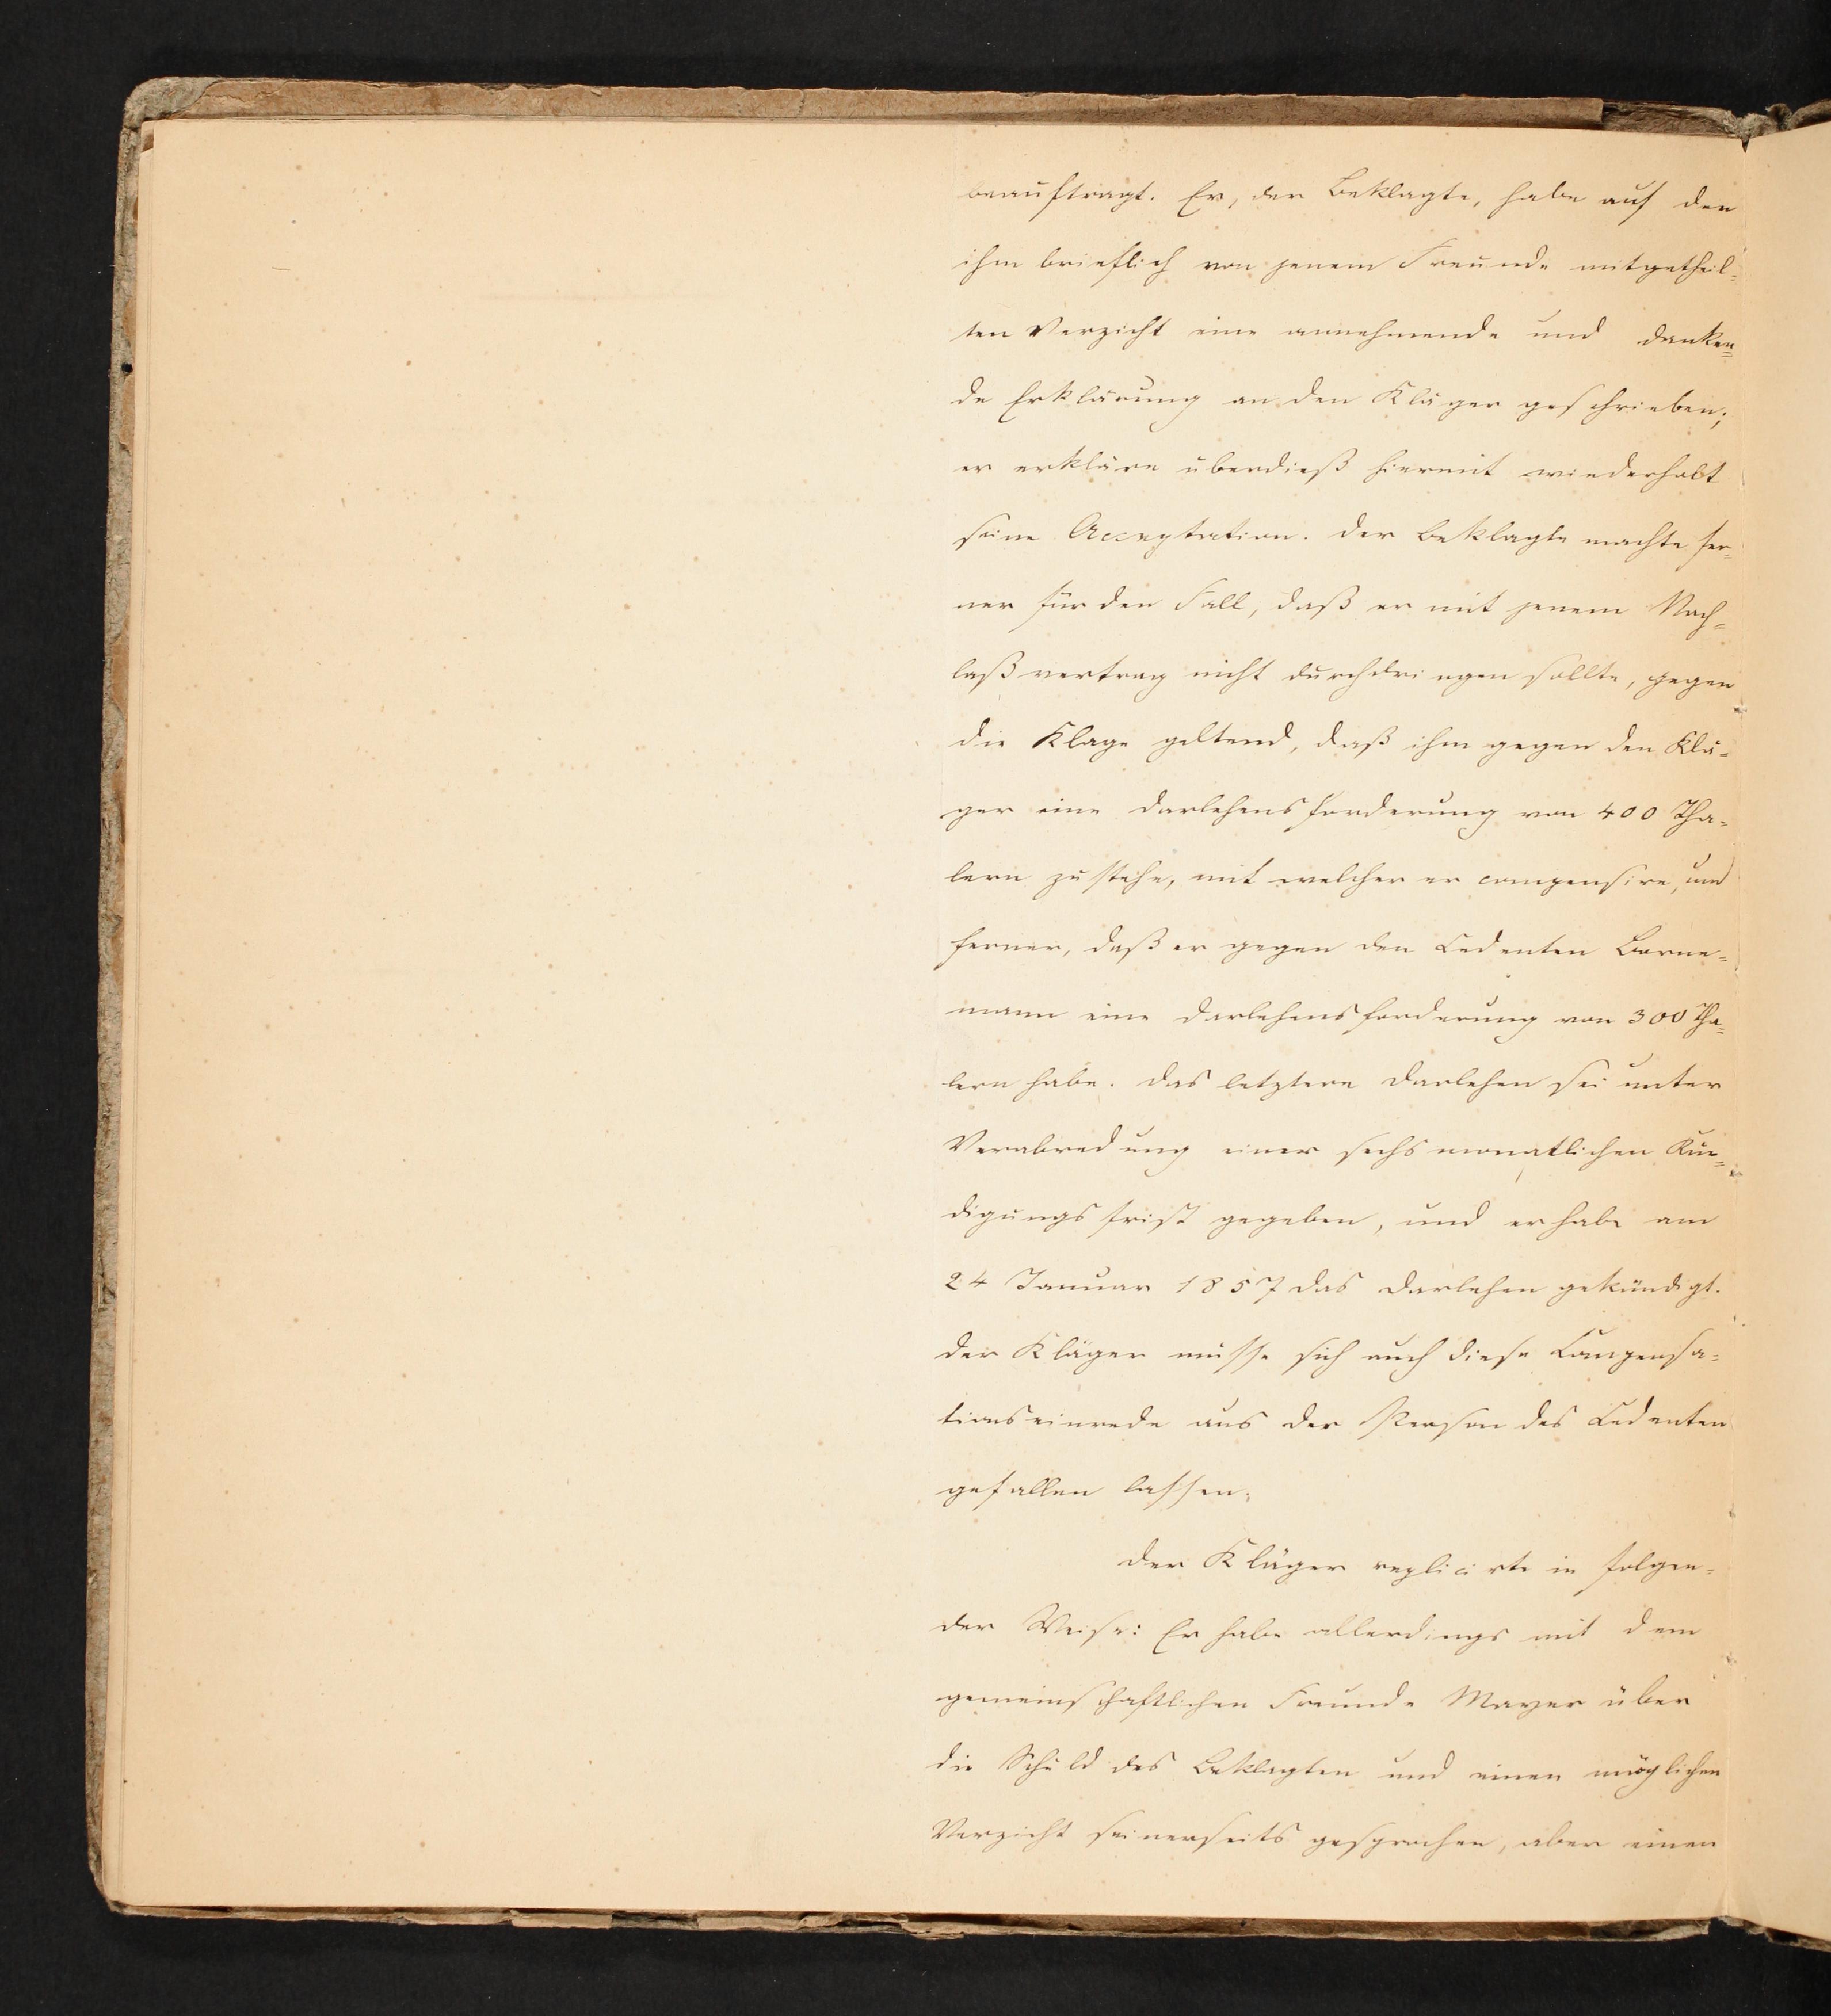 beauftragt. Er, der Beklagte, habe auf den
ihm brieflich von jenem Freunde mitgetheil-
ten Verzicht eine annehmende und danken-
de Erklärung an den Kläger geschrieben;
er erkläre überdieß hiermit wiederholt
seine Acceptation. Der Beklagte machte fer-
ner für den Fall, daß er mit jenem Nach-
laßvertrag nicht durchdringen sollte, gegen
die Klage geltend, daß ihm gegen den Klä-
ger eine Darlehensforderung von 400 Tha-
lern zustehe, mit welcher er compensire, und
ferner, daß er gegen den Cedenten Borne-
mann eine Darlehensforderung von 300 Tha-
lern habe. Das letztere Darlehen sei unter
Verabredung einer sechsmonatlichen Kün-
digungsfrist gegeben, und er habe am
24 Januar 1857 das Darlehen gekündigt.
Der Kläger müsse sich auch diese Compensa-
tionseinrede aus der Person des Cedenten
gefallen lassen.
Der Kläger replicirte in folgen-
der Weise: Er habe allerdings mit dem
gemeinschaftlichen Freunde Mayer über
die Schuld des Beklagten und einen möglichen
Verzicht seinerseits gesprochen, aber einen